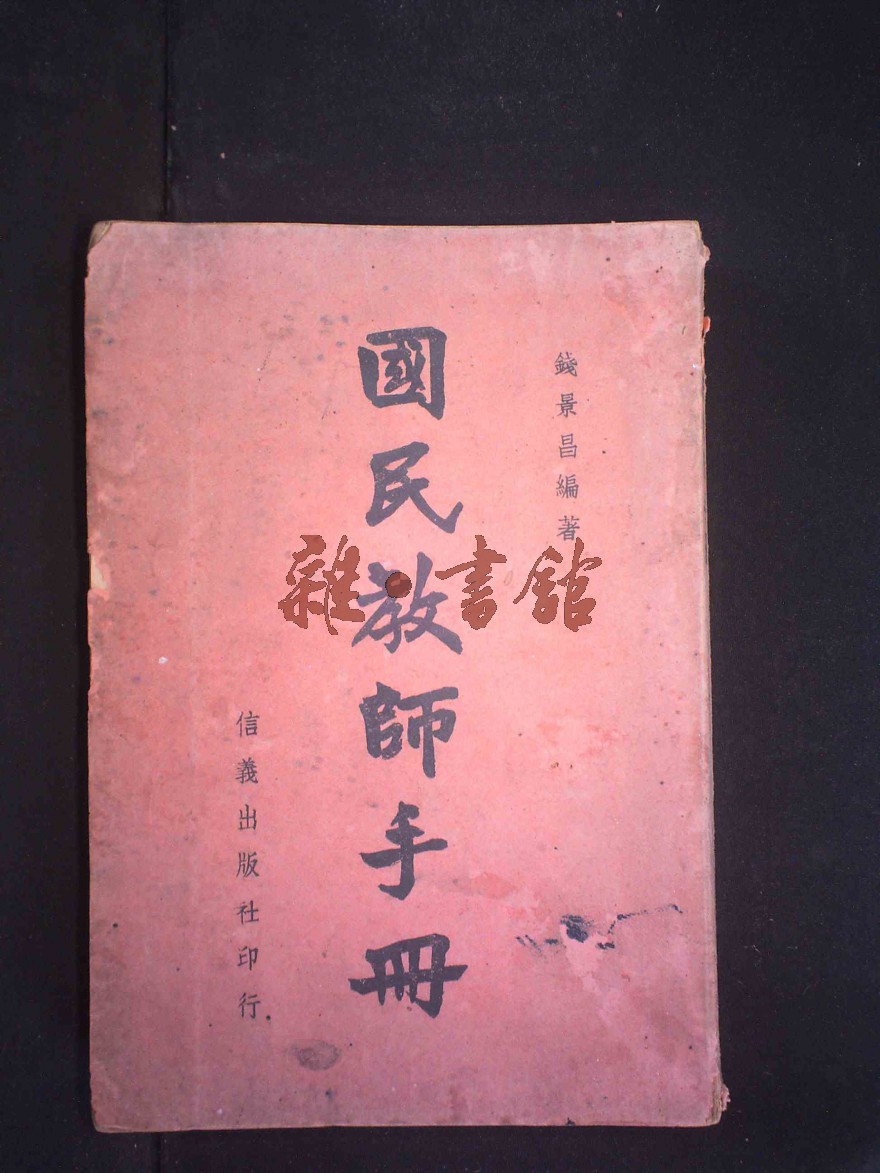 錢景昌編著
國民教師手冊
信義出版社印行
雜·書館